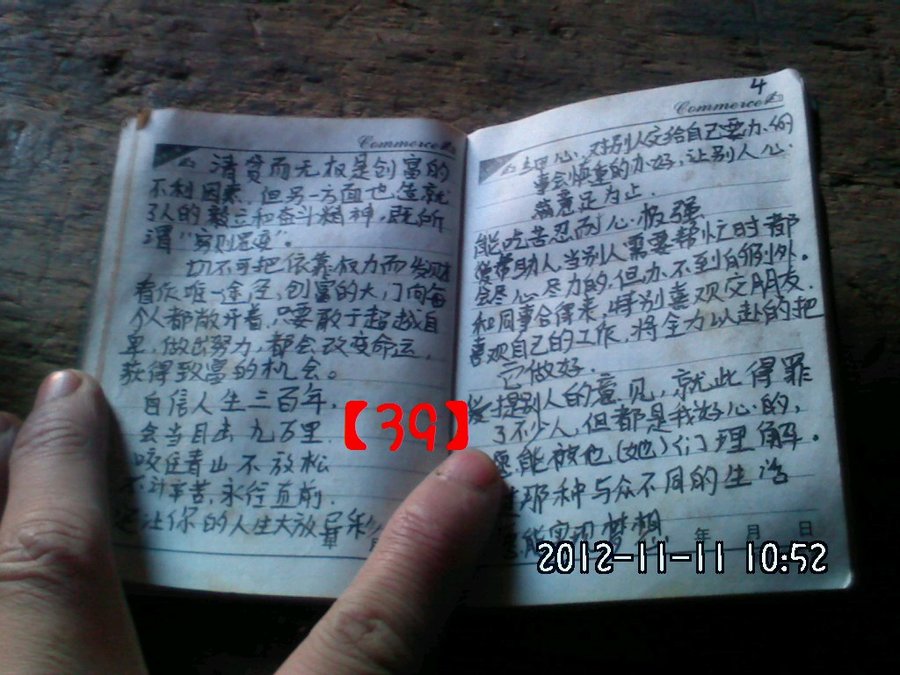 Commerce
清贫而无权是创富的
不利因素,但另一方面也造就
了人的独立和奋斗精神,既所
谓“穷则思变”。
切不可把依靠权力而发财
看作唯一途径,创富的大门向每
个人都敞开着,只要敢于超越自
卑,做出努力,都会改变命运,
获得致富的机会。
自信人生二百年,
会当目击九万里
咬住青山不放松
不计辛苦,永往直前.
让你的人生大放异彩
月
【39】
4
Commerce
心,对别人交给自己要办的
事会慎重的办好,让别人心
满意足为止.
能吃苦忍耐心极强
爱帮助人当别人需要帮忙时都
会尽心尽力的,但办不到的例外。
和同事合得来,特别喜欢交朋友.
喜欢自己的工作,将全力以赴的把
它做好.
爱提别人的意见,就此得罪
了不少人,但都是我好心的,
愿能被他(她)们理解。
那种与众不同的生活
愿能实现梦想
年 月 日
2012-11-11 10:52